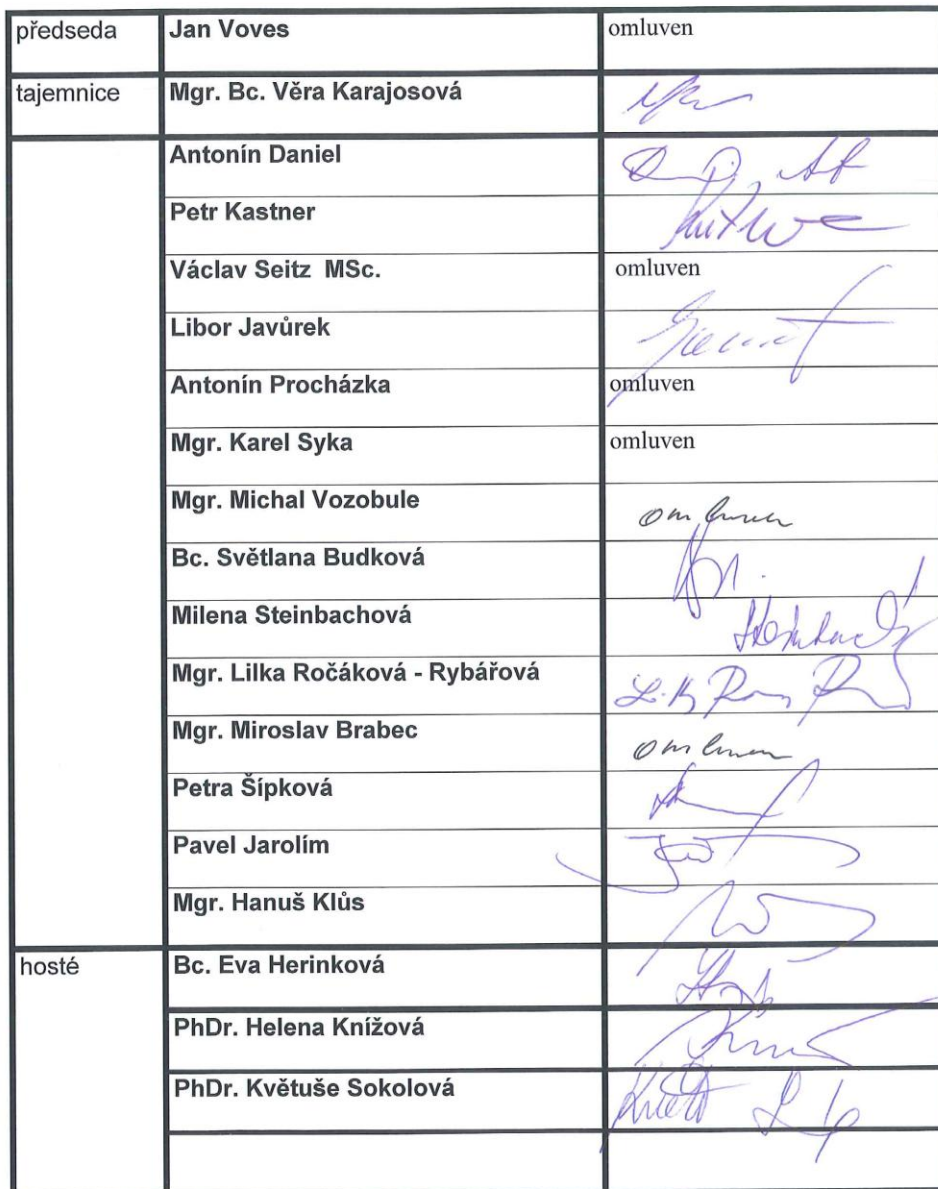 předseda Jan Voves omluven
tajemnice Mgr. Bc. Věra Karajosová
Antonín Daniel
Petr Kastner
Václav Seitz MSc. omluven
Libor Javůrek
Antonín Procházka omluven
Mgr. Karel Syka omluven
Mgr. Michal Vozobule omluven
Bc. Světlana Budková
Milena Steinbachová
Mgr. Lilka Ročáková - Rybářová
Mgr. Miroslav Brabec omluven
Petra Šípková
Pavel Jarolím
Mgr. Hanuš Klůs
hosté Bc. Eva Herinková
PhDr. Helena Knížová
PhDr. Květuše Sokolová